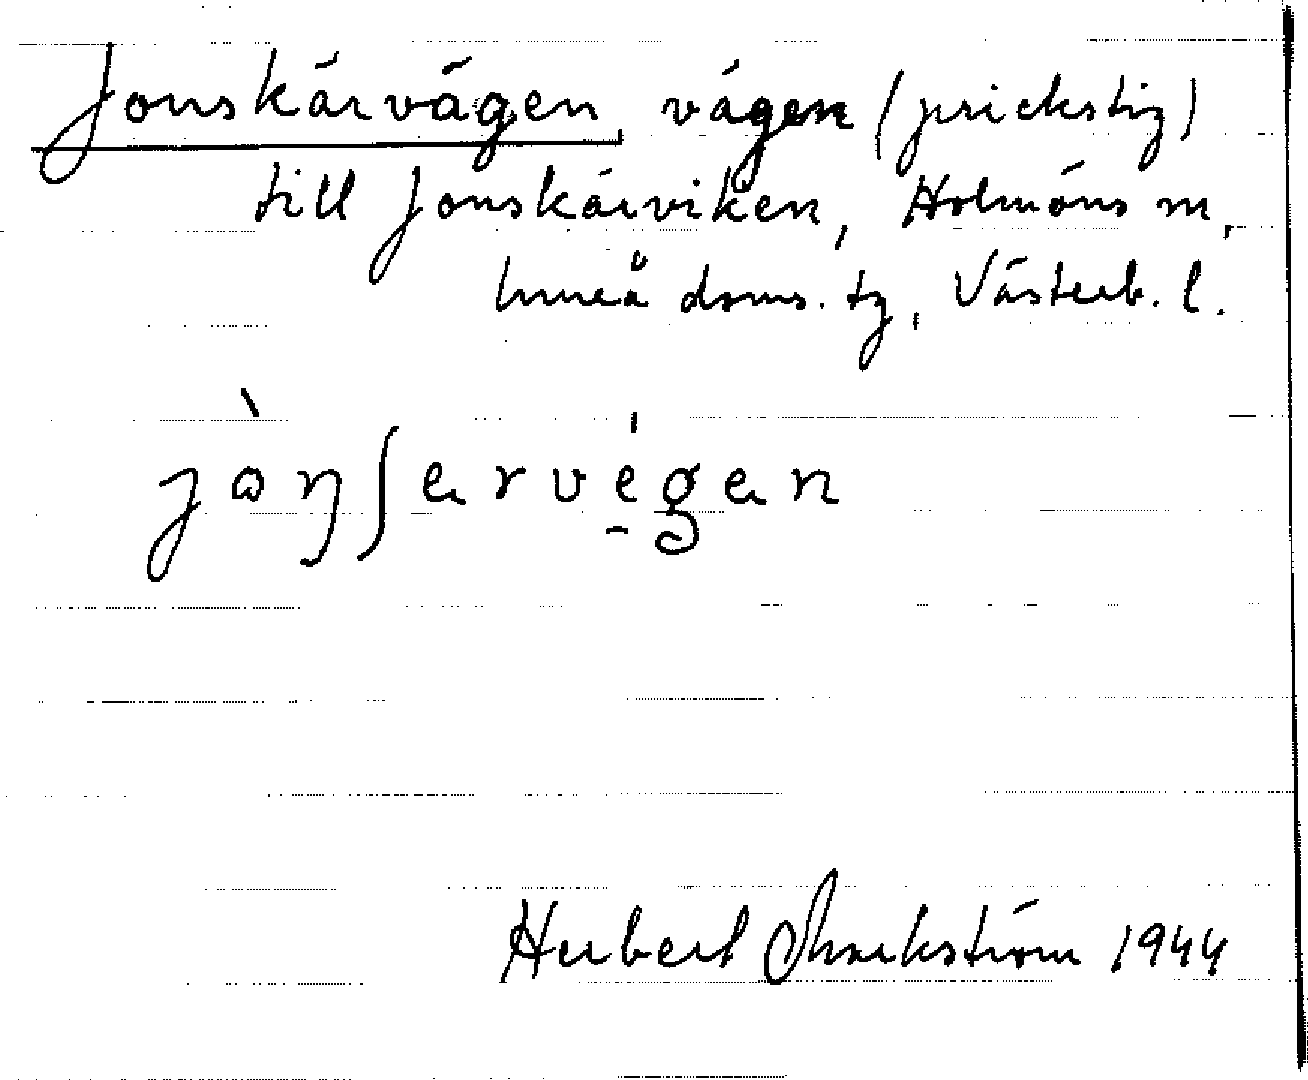 Jonskärvägen, vägen (prickstig)
till Jonskärviken, Holmöns sn,
Umeå doms. tg, Västerb. l.
Herbert Markström 1944